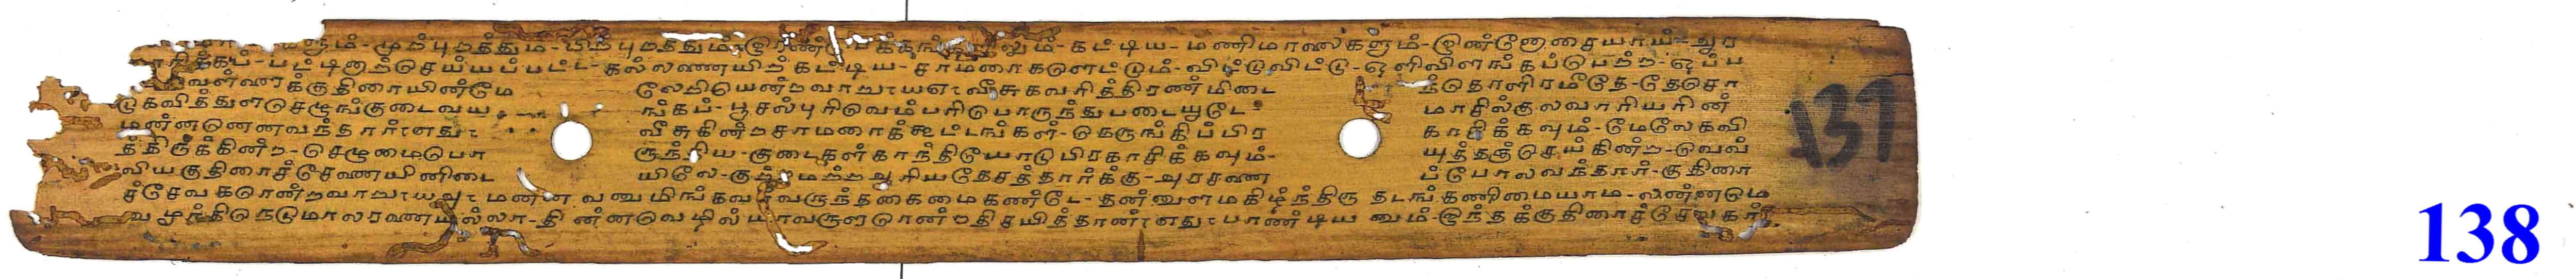 ரும்-முற்புறத்தும்-பிற்புறத்தும்-இரண்டு பக்கங்களிலும்-கட்டிய-மணிமாலைகளும்-ஒண்டுனாசையாய்-அர
பாரிக்கப்-பட்டினாற்செய்யப்பட்ட-கல்லணையிற்கட்டிய-சாமரைகளெட்டும்-விட்டுவிட்டு-ஒளிவிளங்கப்பெற்ற-ஒப்ப
வெள்ளைக்குதிரையின்மே லேறியென்றவாறு வீசுகவரித்திரண்மிடை ந்தொளிரமீதே-தேசொ
கவித்துளசெழுங்குடைவய ங்கப்-பூசல்புரிவெம்பரிபொருந்துபடையூடே மாசில்குலவாரியரின்
மன்னனெனவந்தார் எது வீசுகின்றசாமரைக்கூட்டங்கள்-நெருங்கிப்பிர காசிக்கவும்-மேலேகவி
த்திருக்கின்ற-செழுமைபொ ருந்திய-குடைகள்காந்தியோடுபிரகாசிக்கவும்- யுத்தஞ்செய்கின்ற-வெவ்
வியகுதிரைச்சேனையினிடை யிலே-குற்றமற்றஆரியதேசத்தார்க்கு-அரசனை ப்போலவந்தார்-குதிரை
ச்சேவகரென்றவாறு மன்னவனுமிங்கவர்வருந்தகைமைகண்டே-தன்னுளமகிழ்ந்திரு தடங்கணிமையாம-லன்னமெ
வழுந்திடுநெடுமாலரணையல்லா-தின்னவெழில்யாவருளரென்றதிசயித்தான் எது பாண்டியனும்-இந்தக்குதிரைச்சேவகர்
137
138